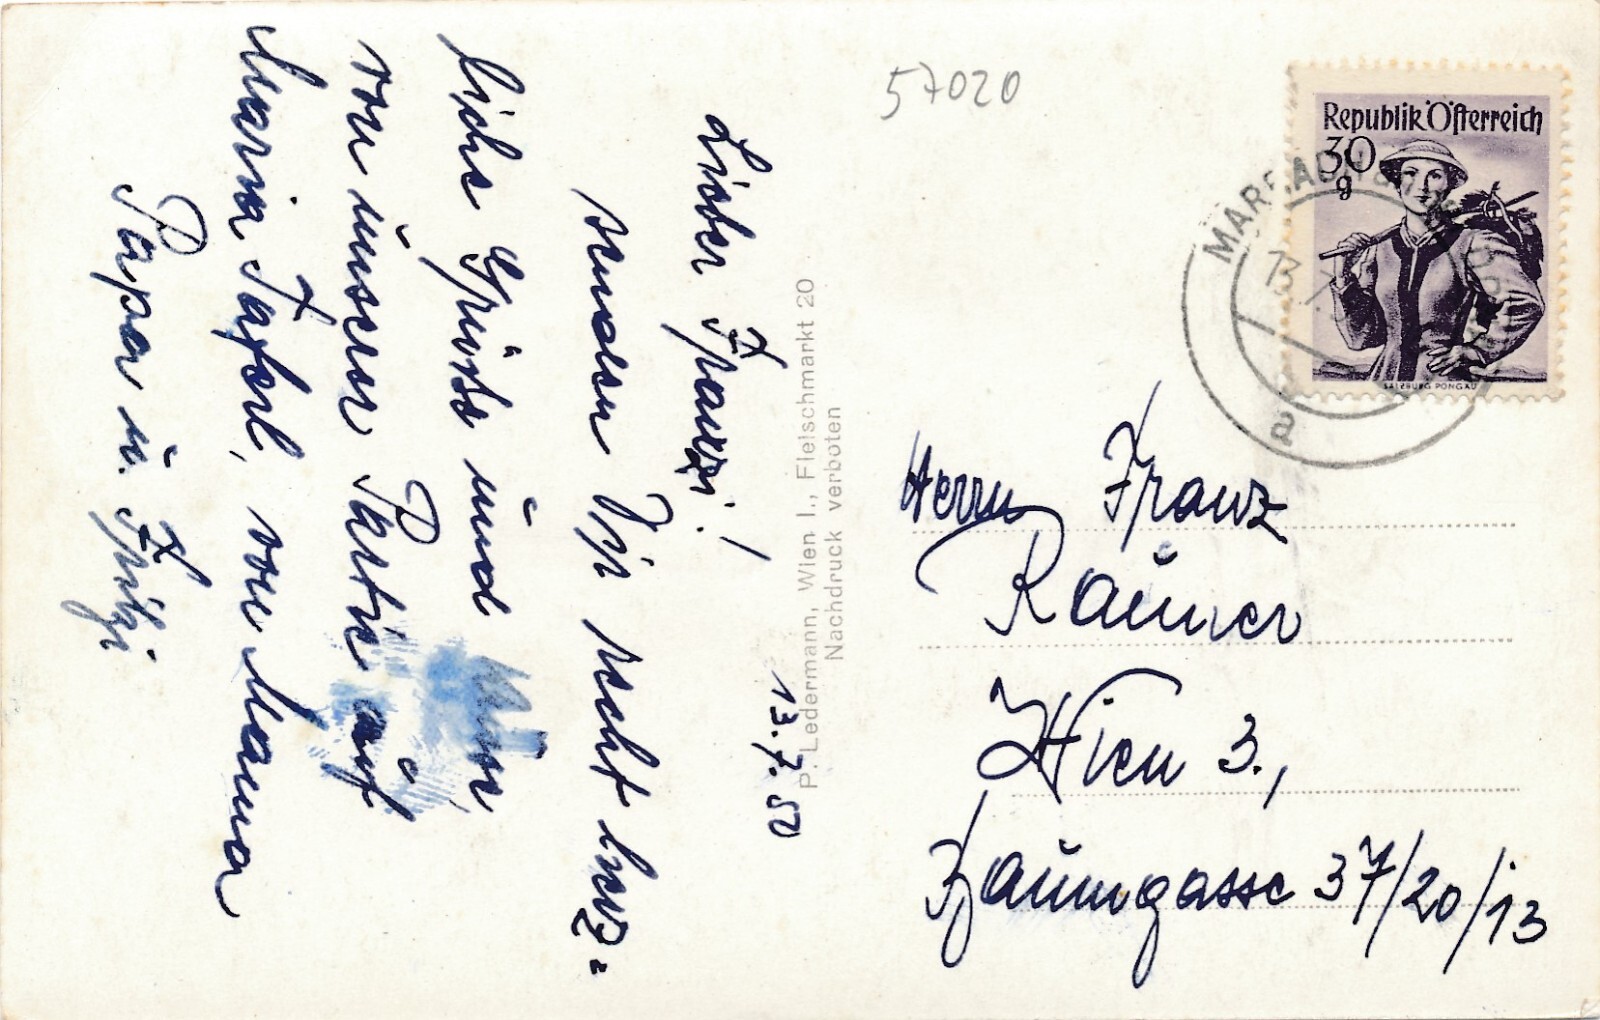 57020
Republik Österreich
30
g
SALZBURG PONGAU
13.7.
a
13.7.50
Lieber Franzi!
senden Dir recht herz=
liche Grüsse und Bussi,
von unserer Partie auf
Maria Taferl, von Mama
Papa u. Fritzi
P. Ledermann, Wien I., Fleischmarkt 20
Nachdruck verboten
Herrn Franz
Rauner
Wien 3.,
Baumgasse 37/20/13